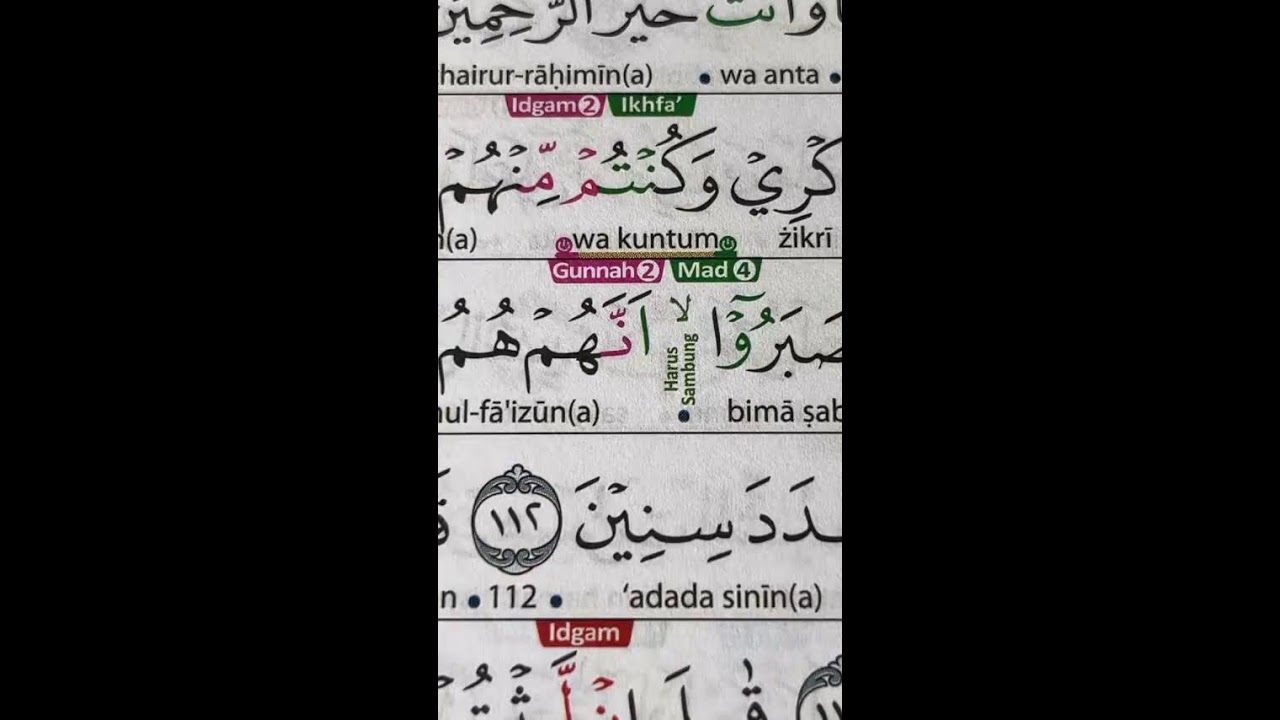 وَاَنْتَ خَيْرُ الرَّحِمِيْنَ
hairur-rāḥimīn(a) • wa anta •
Idgam 2 Ikhfa’
كْرِيْ وَكُنْتُمْ مِّنْهُمْ
n(a) wa kuntum żikrī
Gunnah 2 Mad 4
صَبَرُوْٓا ۙ اَنَّهُمْ هُمُ
Harus Sambung
nul-fā'izūn(a) • bimā ṣab
دَدَ سِنِيْنَ ١١٢
n • 112 • ‘adada sinīn(a)
Idgam